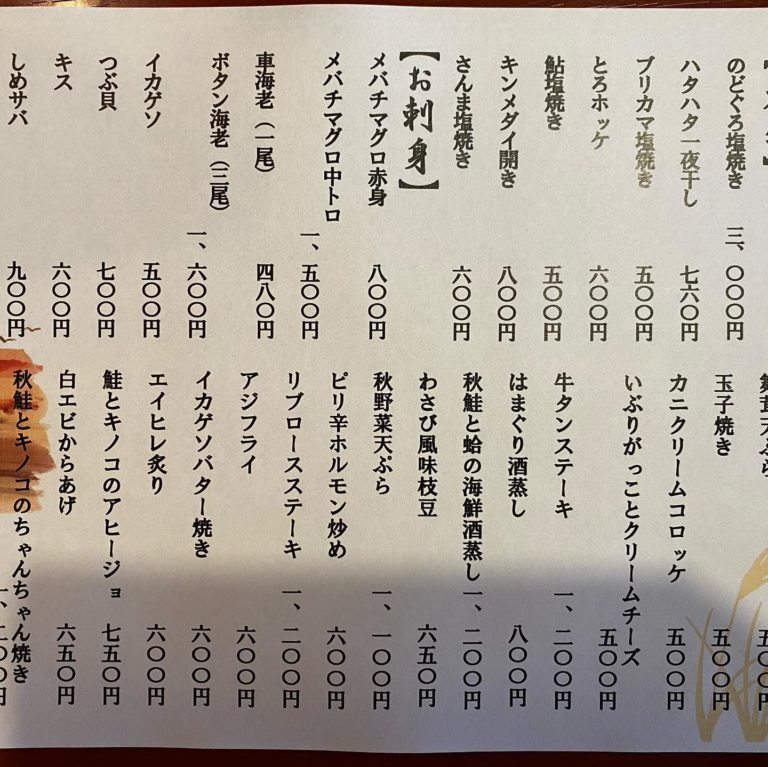 のどぐろ塩焼き 三、〇〇〇円
ハタハタ一夜干し 七六〇円
ブリカマ塩焼き 五〇〇円
とろホッケ 六〇〇円
鮎塩焼き 五〇〇円
キンメダイ開き 八〇〇円
さんま塩焼き 六〇〇円
【お刺身】
メバチマグロ赤身 八〇〇円
メバチマグロ中トロ 一、五〇〇円
車海老（一尾） 四八〇円
ボタン海老（三尾） 一、六〇〇円
イカゲソ 五〇〇円
つぶ貝 七〇〇円
キス 六〇〇円
しめサバ 九〇〇円
舞茸天ぷら 五〇〇円
玉子焼き 五〇〇円
カニクリームコロッケ 五〇〇円
いぶりがっことクリームチーズ 五〇〇円
牛タンステーキ 一、二〇〇円
はまぐり酒蒸し 八〇〇円
秋鮭と蛤の海鮮酒蒸し 一、二〇〇円
わさび風味枝豆 六五〇円
秋野菜天ぷら 一、一〇〇円
ピリ辛ホルモン炒め 六〇〇円
リブロースステーキ 一、二〇〇円
アジフライ 六〇〇円
イカゲソバター焼き 六〇〇円
エイヒレ炙り 六〇〇円
鮭とキノコのアヒージョ 七五〇円
白エビからあげ 六五〇円
秋鮭とキノコのちゃんちゃん焼き 一、二〇〇円